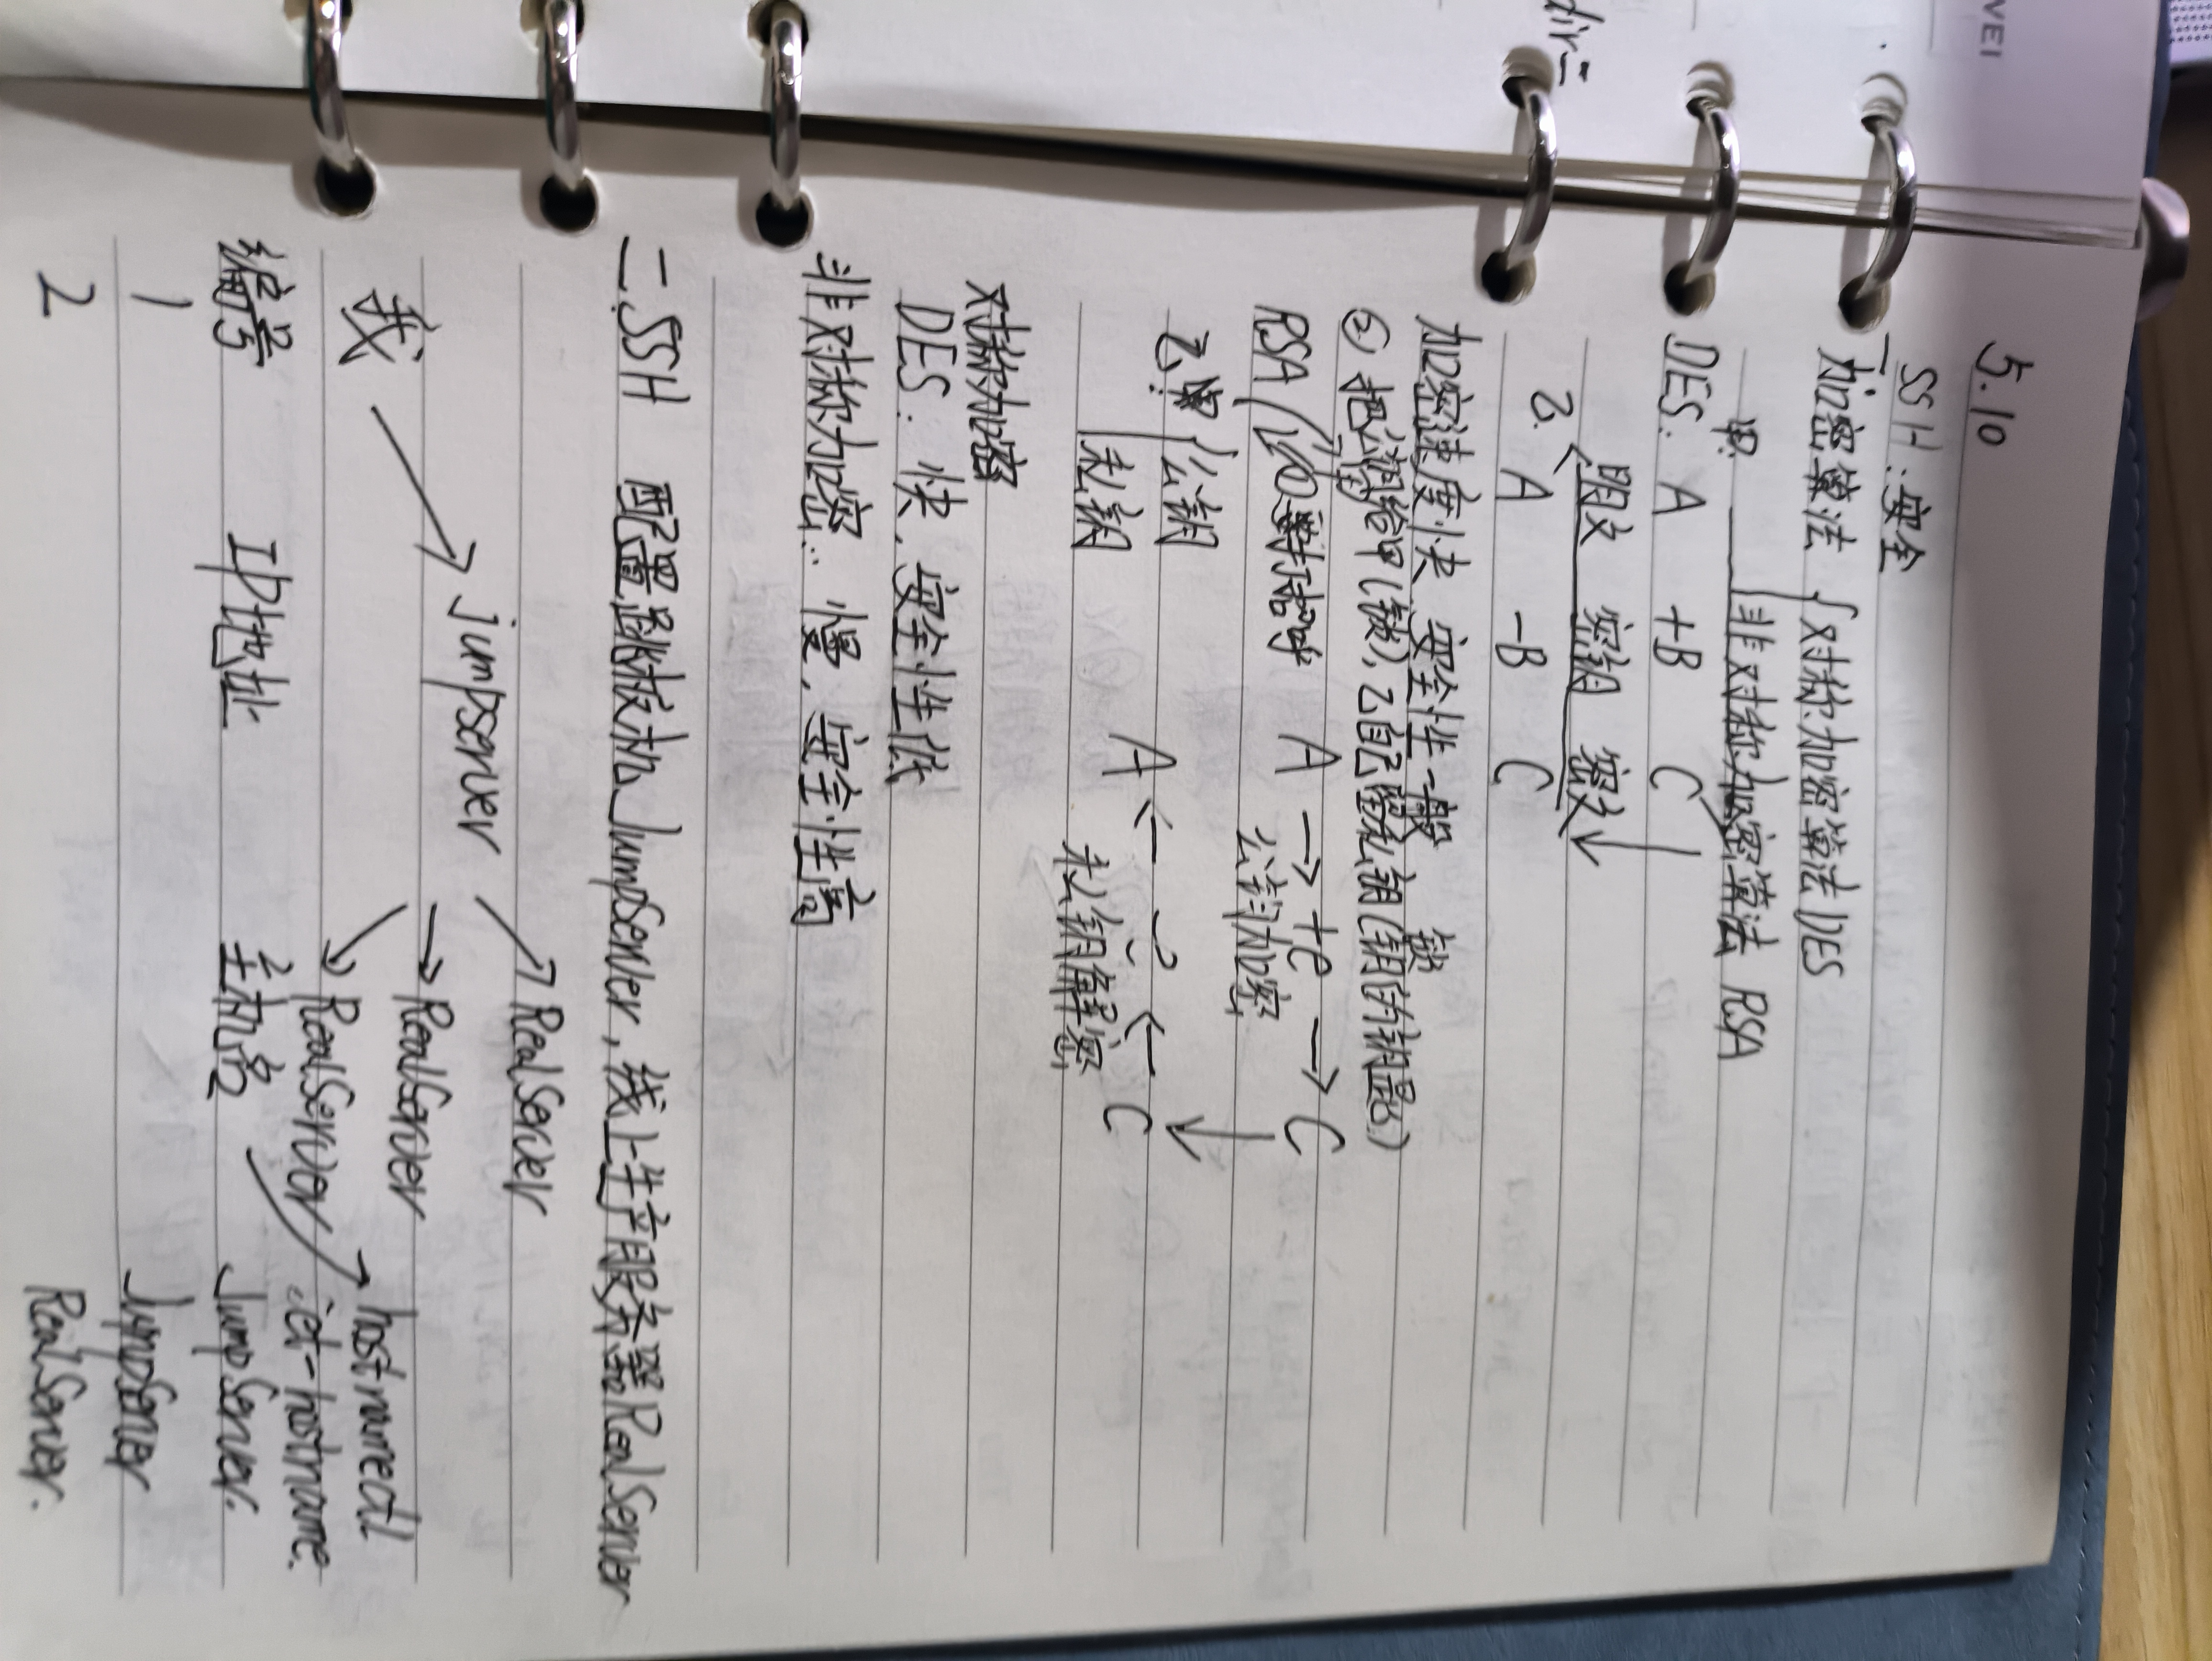 5.10
SSH:安全
一.加密算法 { 对称加密算法DES
非对称加密算法 RSA
甲.
DES: A +B C
明文 密钥 密文
乙. A -B C
加密速度快 安全性一般
锁
② 把公钥给甲(锁),乙自己留私钥(钥的钥匙)
RSA A → +C → C
公钥加密
乙: 公钥
私钥
A ← ← C
私钥解密
对称加密
DES: 快,安全性低
非对称加密: 慢,安全性高
二.SSH 配置跳板机JumpServer,线上生产服务器RealServer
RealServer
我 JumpServer RealServer
RealServer
hostnamectl
set-hostname
编号 IP地址 主机名 JumpServer.
1 JumpServer
2 RealServer.
dir=
WEI